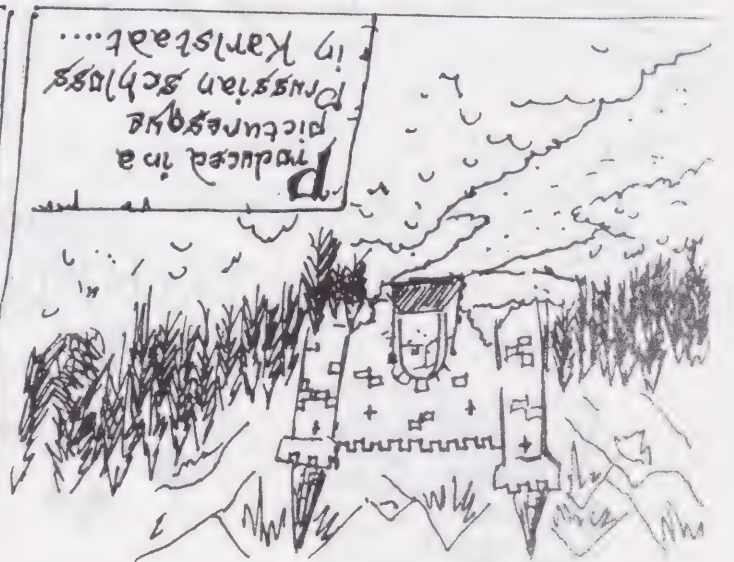 Produced in a
picturesque
Prussian schloss
in Karlstadt....